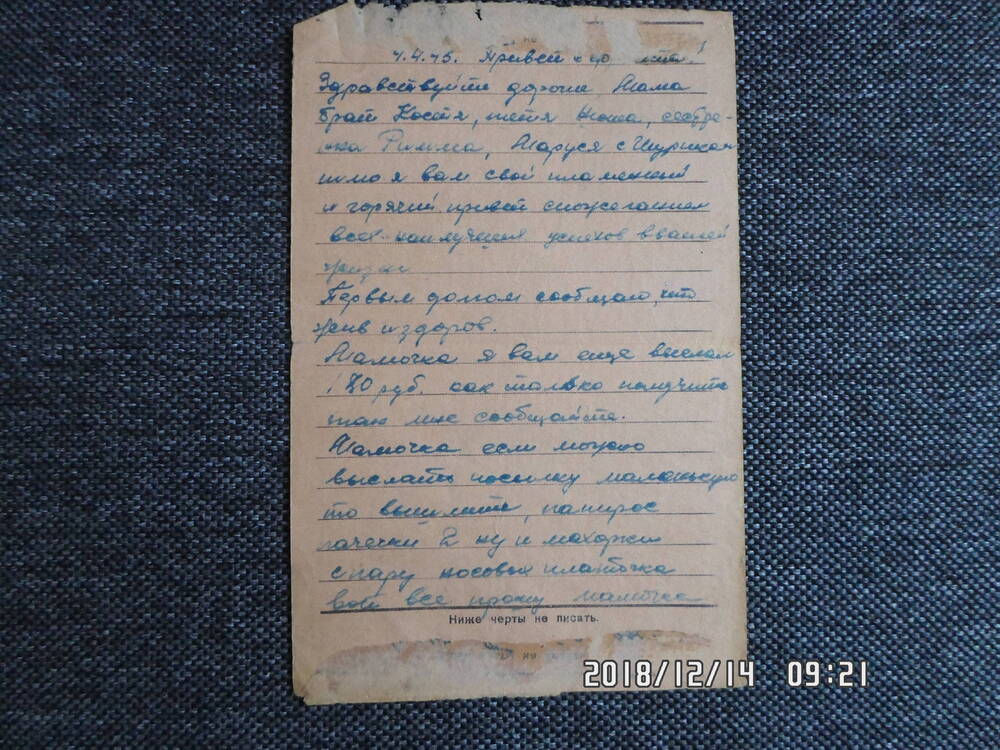 4.4.45. Привет
Здравствуйте дорогие Мама
брат Костя, тетя Нюша, сестре-
нка Римма, Маруся с Шурикам
шлю я вам свой пламений
и горячий привет спожеланием
всех наилучших успехов ввашей
жизни
Первым долгом сообщаю, что
жив издоров.
Мамочка я вам еще выслал
руб. как толвко получите
так мне сообщайте.
Мамочка если можно
выслать посылку маленькую
то вышлите, папирос
пачечки 2 ну и махорки
спару носовых платочка
вот все прошу мамочка
Ниже черты не писать.
2018/12/14 09:21